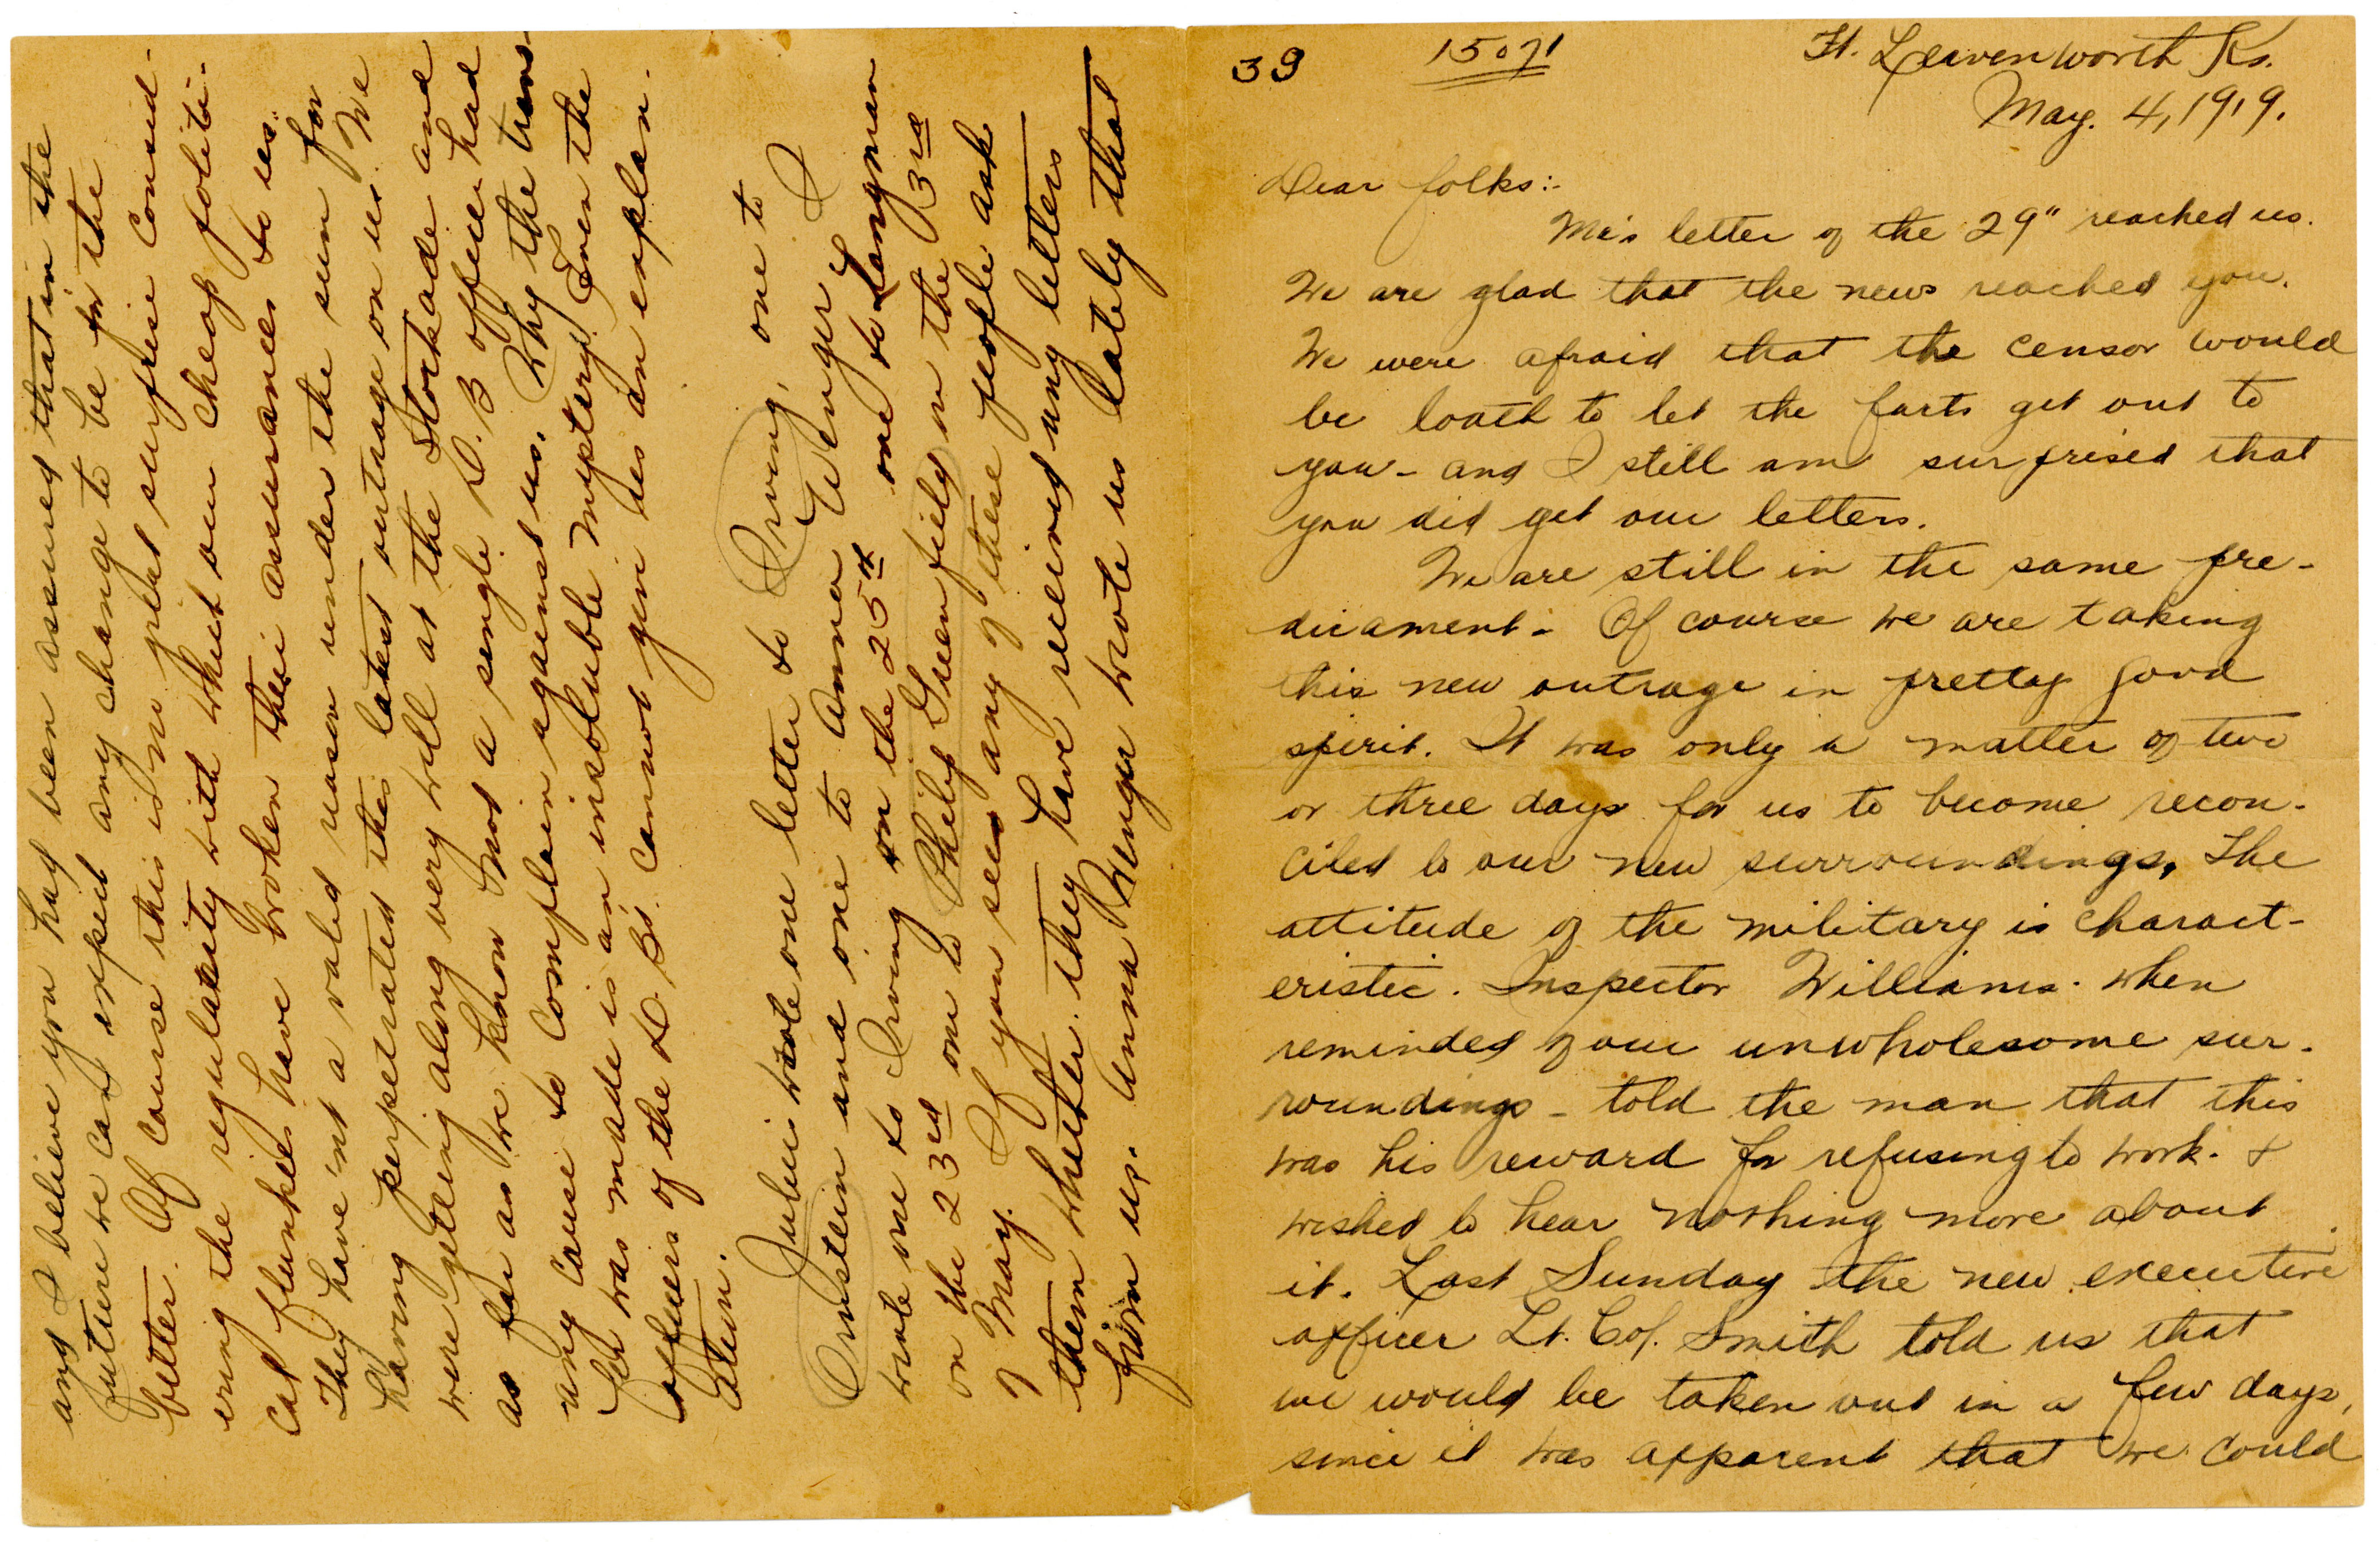 39
15071
Ft. Leavenworth Ks.
May. 4, 1919.
Dear folks:-
Ma's letter of the 29" reached us.
We are glad that the news reached you.
We were afraid that the censor would
be loath to let the facts get out to
you - and I still am surprised that
you did get our letters.
We are still in the same pre-
dicament. Of course we are taking
this new outrage in pretty good
spirit. It was only a matter of two
or three days for us to become recon-
ciled to our new surroundings. The
attitude of the military is charact-
eristic. Inspector Williams. when
reminded of our unwholesome sur-
roundings - told the man that this
was his reward for refusing to work. &
wished to hear nothing more about
it. Last Sunday the new executive
officer Lt. Col. Smith told us that
we would be taken out in a few days,
since it was apparent that we could
and I believe you had been assured that in the
future we can expect any change to be for the
better. Of course this is no great surprise consid-
ering the regularity with which our cheap politi-
cal flunkies have broken their assurances to us.
They have'nt a valid reason under the sun for
having perpetrated this latest outrage on us. We
were getting along very well at the stockade and
as far as we know not a single D. B officer had
any cause to complain against us. Why the trans-
fer was made is an insoluble mystery. Even the
officers of the D. B's. cannot give us an explan-
ation.
Julius wrote one letter to Irving, one to
Ornstein and one to Anna Wenger. I
wrote one to Irving on the 25th one to Langman
on the 23rd one to Philip Greenfield on the 3rd
of May. If you see any of these people ask
them whether they have received any letters
from us. Anna Wenger wrote us lately that